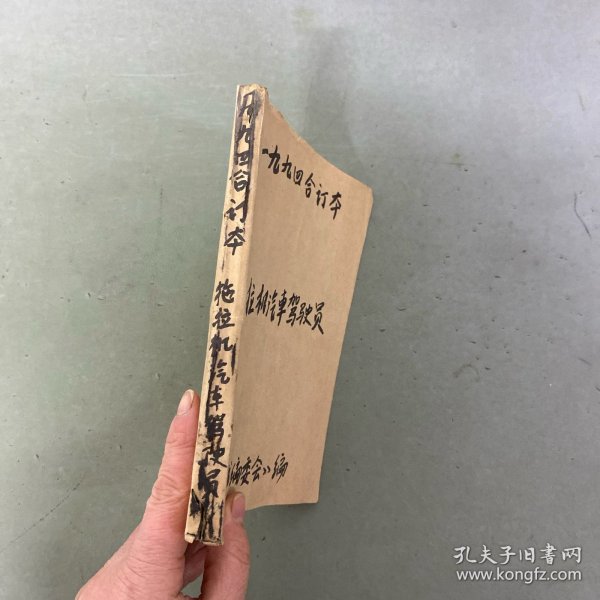 一九九四合订本
拉机汽車驾驶员
编委会》编
九四合订本
拖拉机汽车驾驶员
孔夫子旧书网
www.kongfz.com